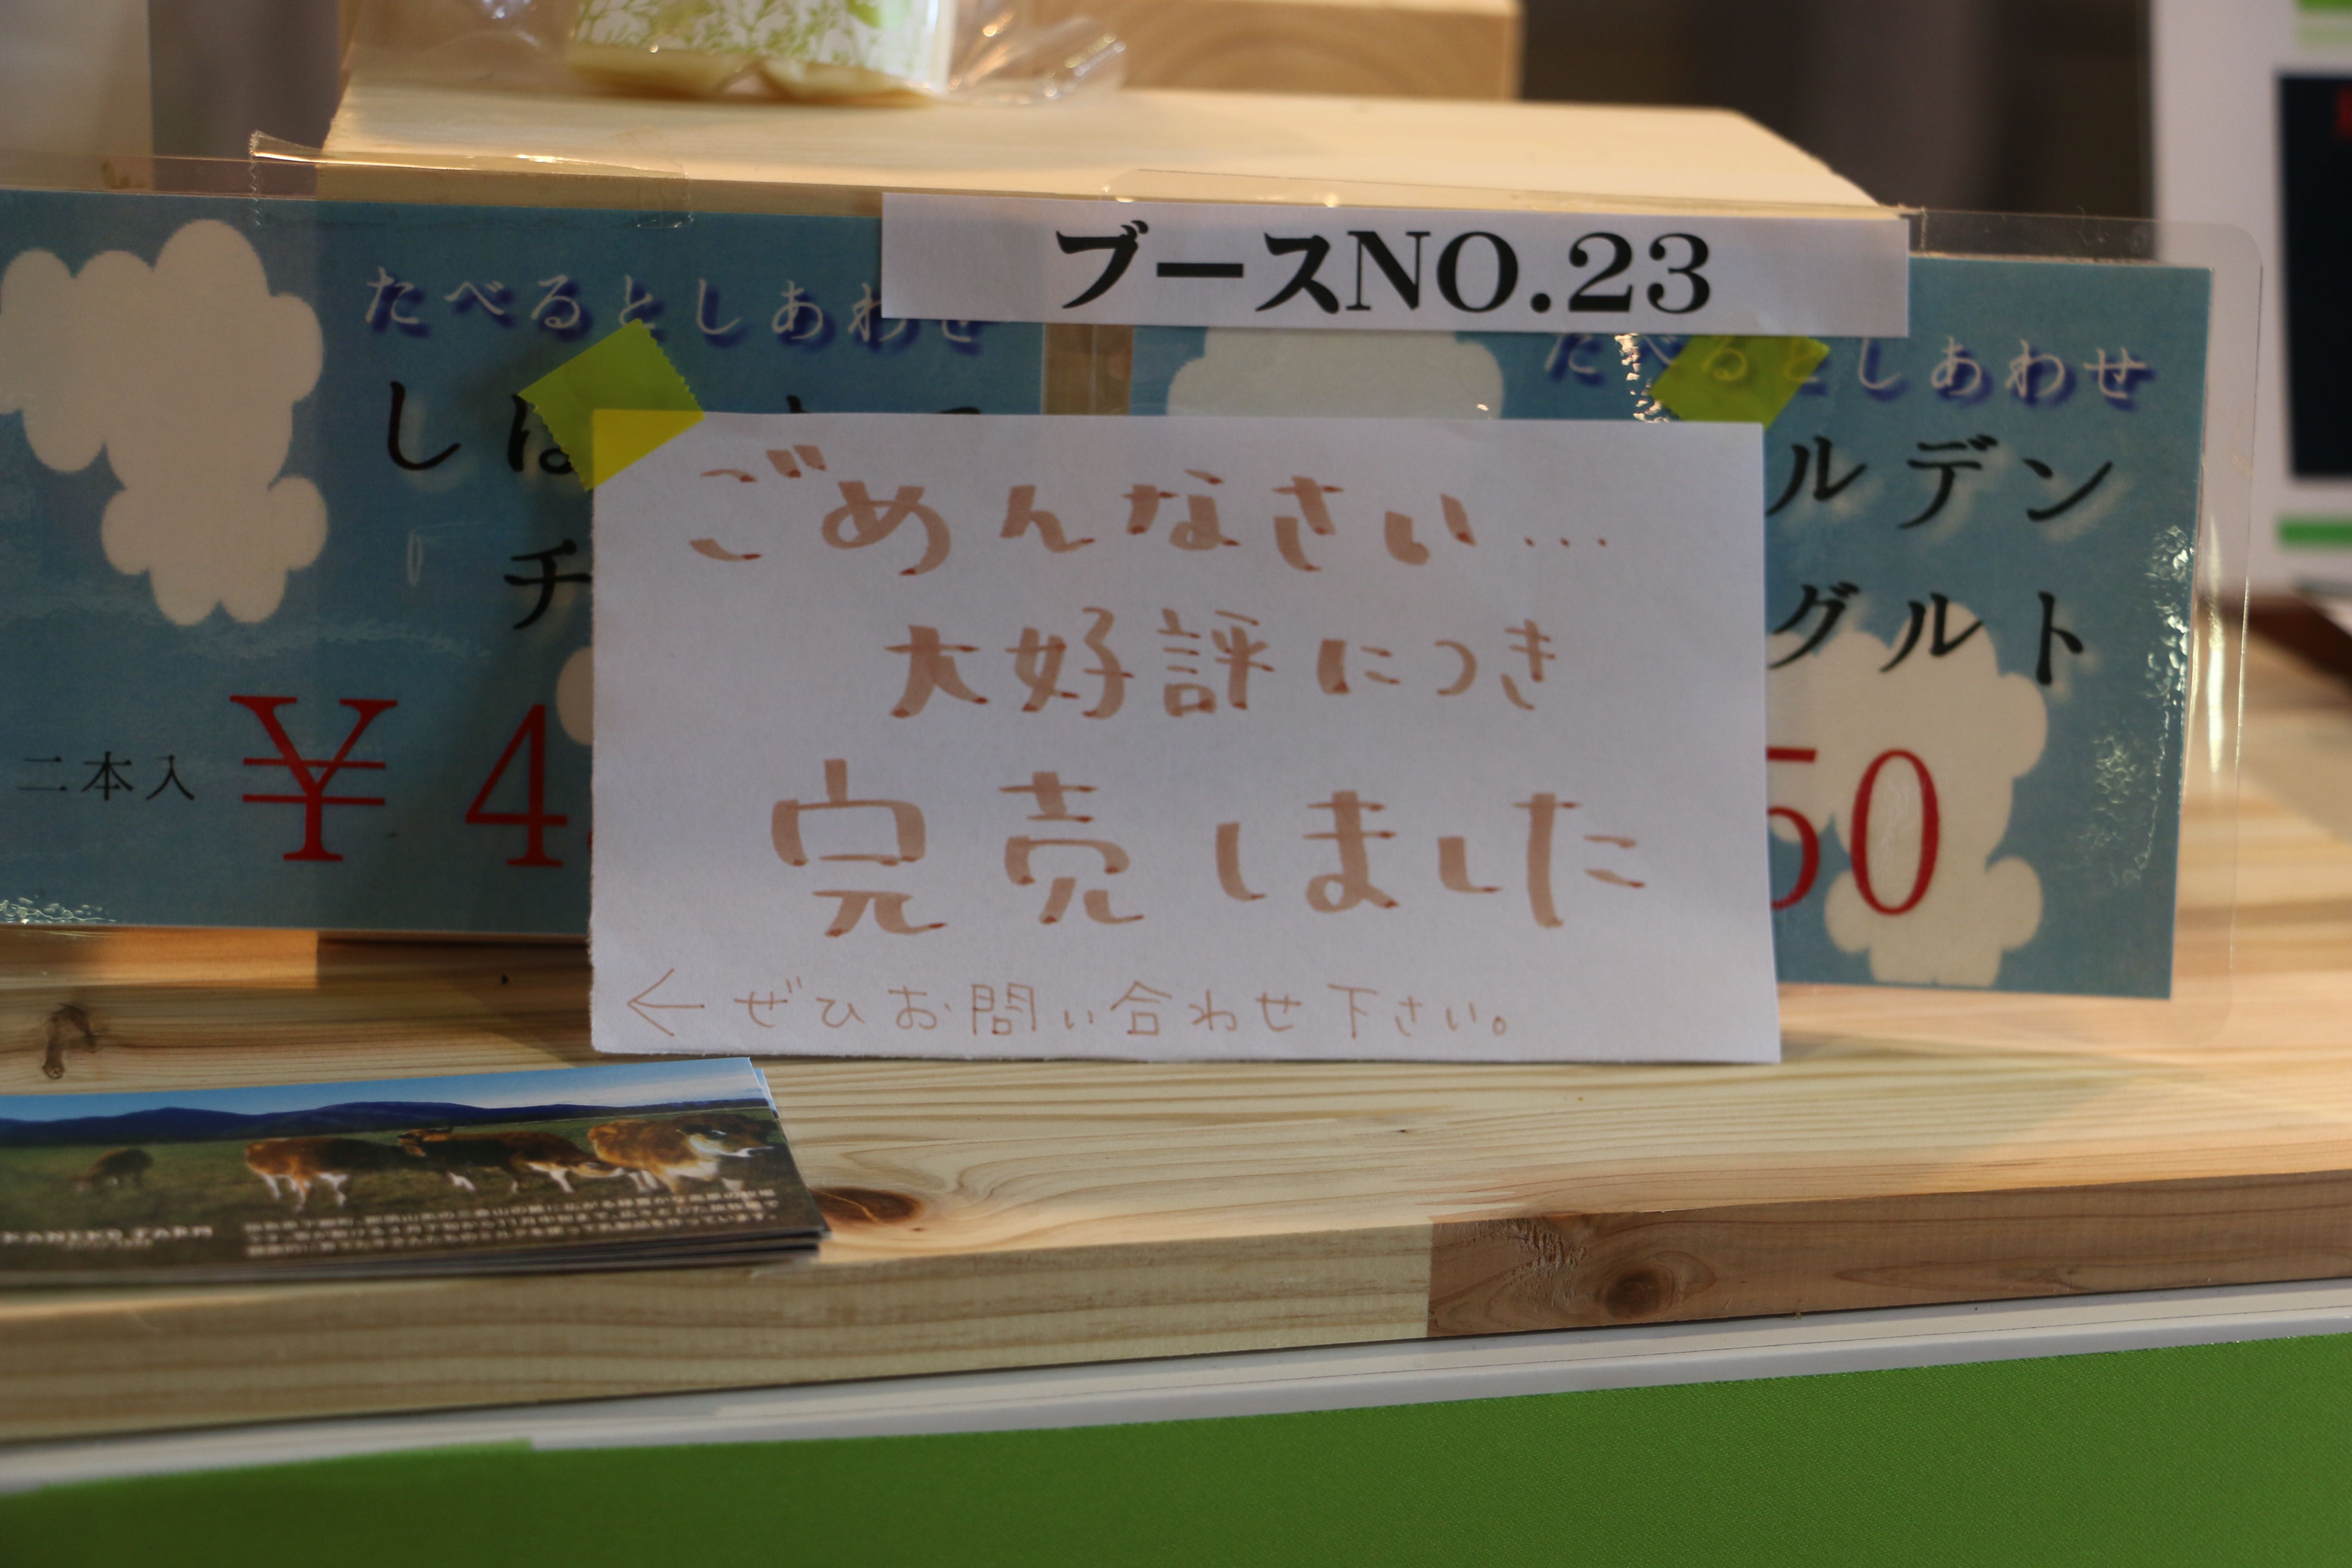 ブースNO.23
たべるとしあわせ
しぼ
チ
二本入 ¥4
たべるとしあわせ
ルデン
グルト
50
ごめんなさい…
大好評につき
完売しました
← ぜひお問い合わせ下さい。
KANEKO FARM